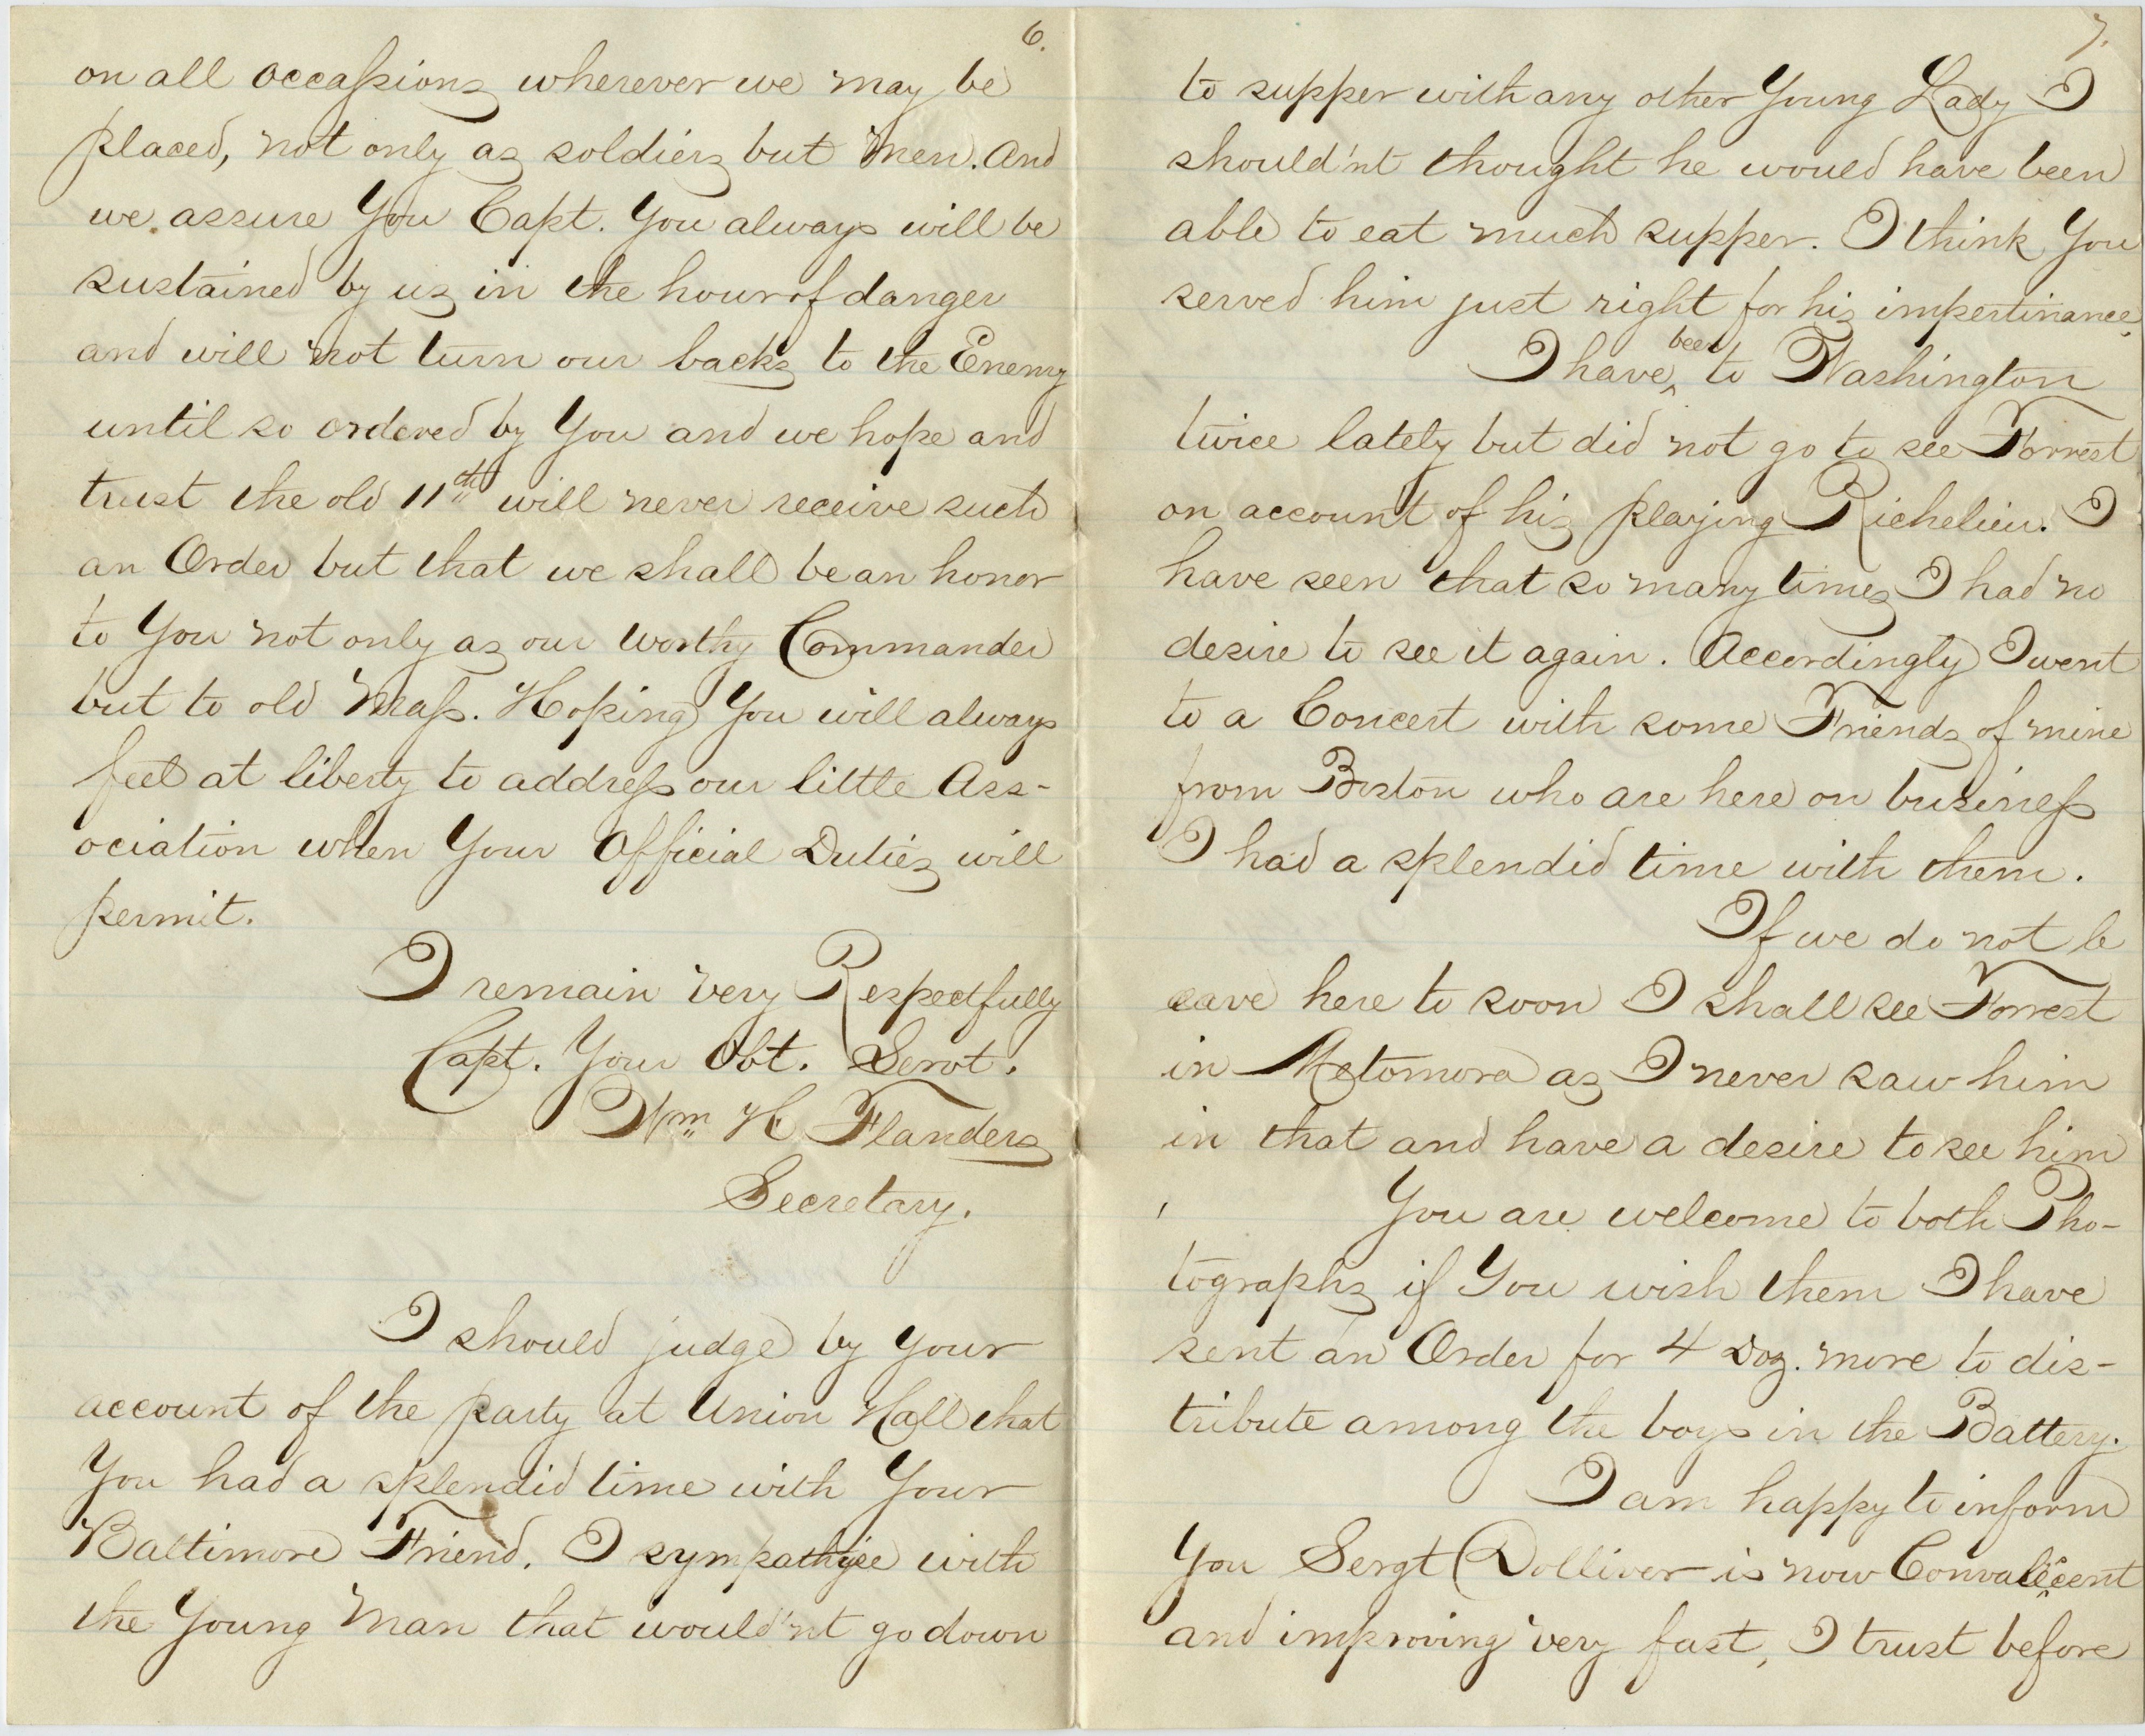 6.
on all occassions wherever we may be
placed, not only as soldiers but Men. And
we assure You Capt. You always will be
sustained by us in the hour of danger
and will not turn our backs to the Enemy
until so ordered by You and we hope and
trust the old 11th will never receive such
an Order but that we shall be an honor
to You not only as our worthy Commander
but to old Mass. Hoping You will always
feel at liberty to address our little Ass-
ociation when Your Official Duties will
permit.
I remain very Respectfully
Capt. Your Obt. Servt.
Wm H Flanders
Secretary.
I should judge by Your
account of the party at Union Hall that
You had a splendid time with Your
Baltimore Friend. I sympathise with
the Young Man that would'nt go down
7.
to supper with any other Young Lady I
should'nt thought he would have been
able to eat much supper. I think You
served him just right for his impertinance.
I have been to Washington
twice lately but did not go to see Forrest
on account of his playing Richelieu. I
have seen that so many times I had no
desire to see it again. Accordingly I went
to a Concert with some Friends of mine
from Boston who are here on business
I had a splendid time with them.
If we do not le
eave here to soon I shall see Forrest
in Metomora as I never saw him
in that and have a desire to see him
You are welcome to both Pho-
tographs if You wish them I have
sent an Order for 4 Doz. more to dis-
tribute among the boys in the Battery.
I am happy to inform
You Sergt Dolliver is now Convalescent
and improving very fast, I trust before